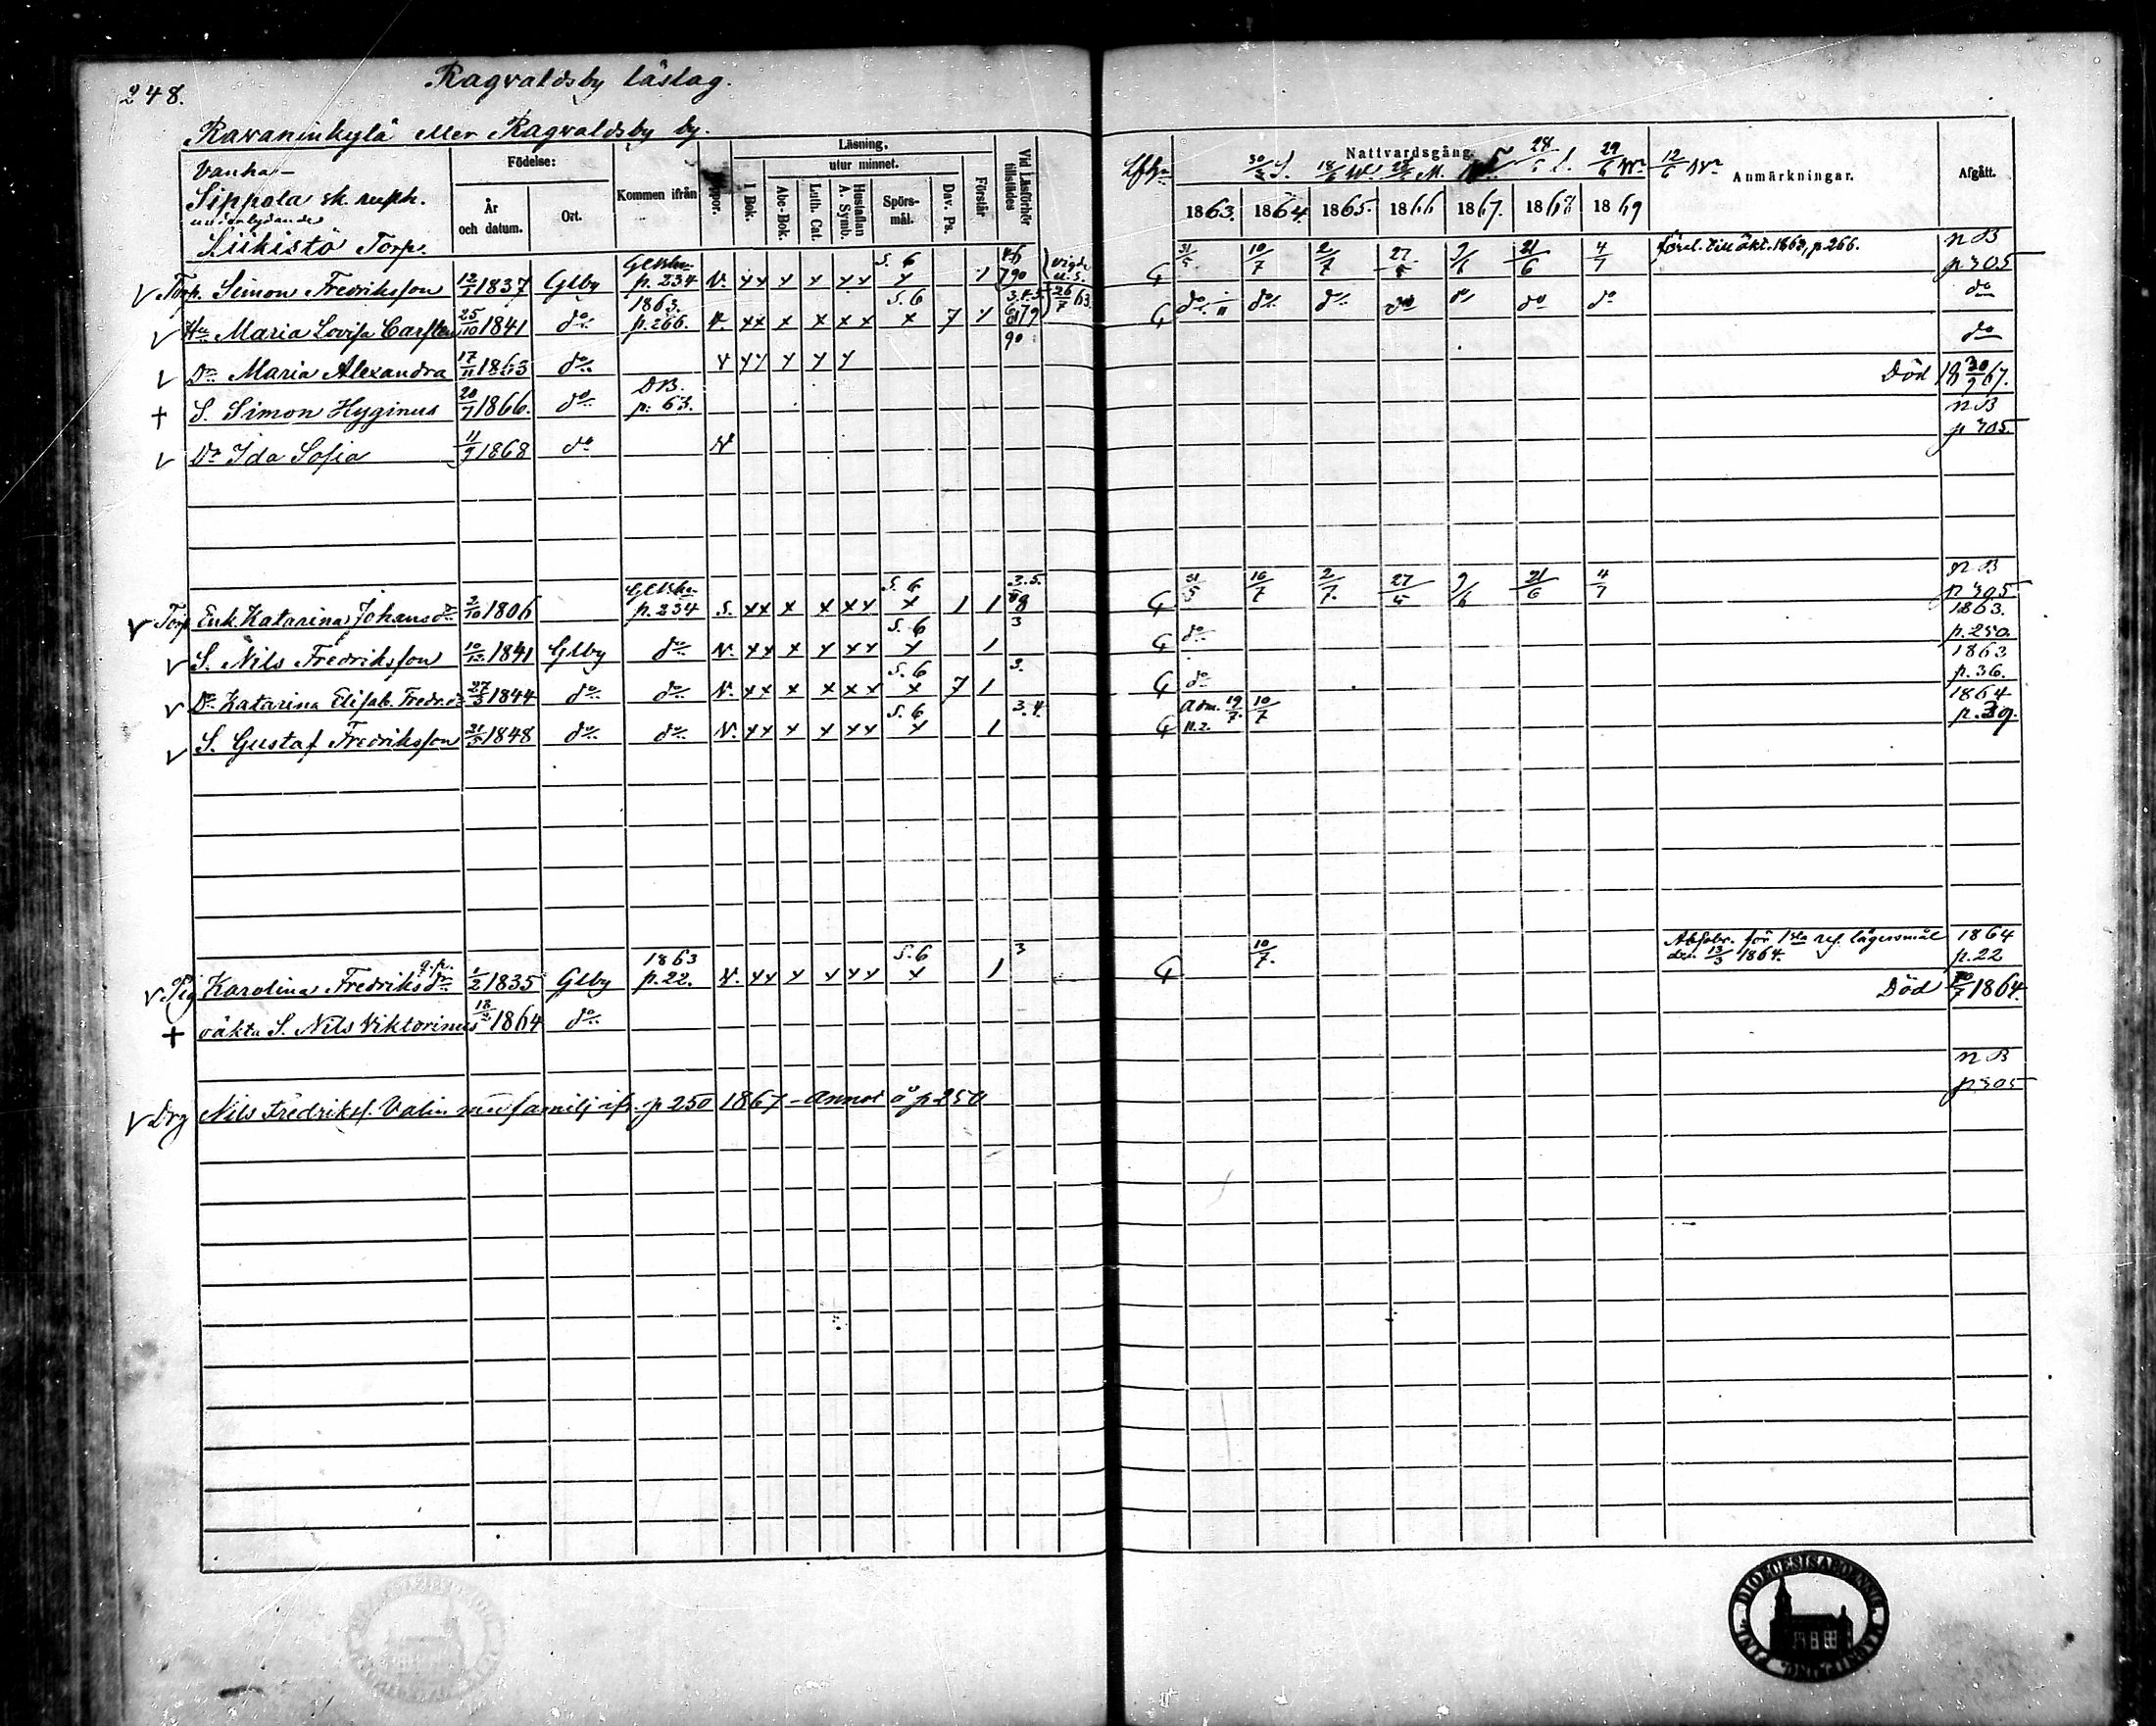 248.
Ragvaldsby läslag.
Ravaninkylä eller Ragvaldsby by.
Vanha-
Sippola sk. rusth.
underlydande
Liikistö Torp.
Födelse:
År och datum.
Ort.
Kommen ifrån
Läsning,
utur minnet.
I Bok.
Abc-Bok.
Luth. Cat.
Hustaflan
A. Symb.
Spörs-
mål.
Dav. Ps.
Förstår
Vid Läsförhör tillstädes
Nattvardsgång.
30/ 18/6 28/ 29/6 12/6
1863. 1864. 1865. 1866 1867. 1868 1869
Anmärkningar.
Afgått.
V Torp. Simon Fredriksson 12/7 1837 Glby p. 234 V. xx x x xx S. 6 x 1 vigde 31/5 10/7 2/7 27/5 9/6 21/6 4/7 förel. till äkt. 1863, p. 266. n B p 305
V Hu Maria Lovisa Carlsten 25/10 1841 do 1863. p. 266. V. xx x x xx S. 6 x 7 1 26/7 63. do do do do do do do do
V Dr Maria Alexandra 17/11 1863 do V xx x x x do
+ S. Simon Hyginus 20/7 1866. do DB. p. 63. Död 18 30/9 67.
V Dr Ida Sofia 11/9 1868 do V n B p 305.
V Torp Enk. Katarina Johansdr 2/10 1806 p. 234 S. xx x x xx S. 6 x 1 1 3.5. 31/5 10/7 2/7 27/5 9/6 21/6 4/7 n B p 305
V S. Nils Fredriksson 10/12 1841 Glby do V. xx x x xx S. 6 x 1 3 do 1863. p. 250.
V Dr Katarina Elisab. Fredr.dr 27/3 1844 do do V. xx x x xx S. 6 x 7 1 3. do 1863 p. 36.
V S. Gustaf Fredriksson 21/5 1848 do do V. xx x x xx S. 6 x 1 3.4. Adm. 19/7. n. 2. 10/7 1864 p. 39.
V Pig Karolina Fredriksdr 1/2 1835 Glby 1863 p. 22. V. xx x x xx S. 6 x 1 3 10/7. Absolv. för 1sta lägersmål den 13/3 1864. 1864 p. 22
+ oäkta S. Nils Viktorinus 18/2 1864 do Död 10/7 1864.
V Drg Nils Fredrikss. Valin med familj ifr. p 250 1867 - annot å p 250 n B p 305
DIOECESIS ABOENSIS